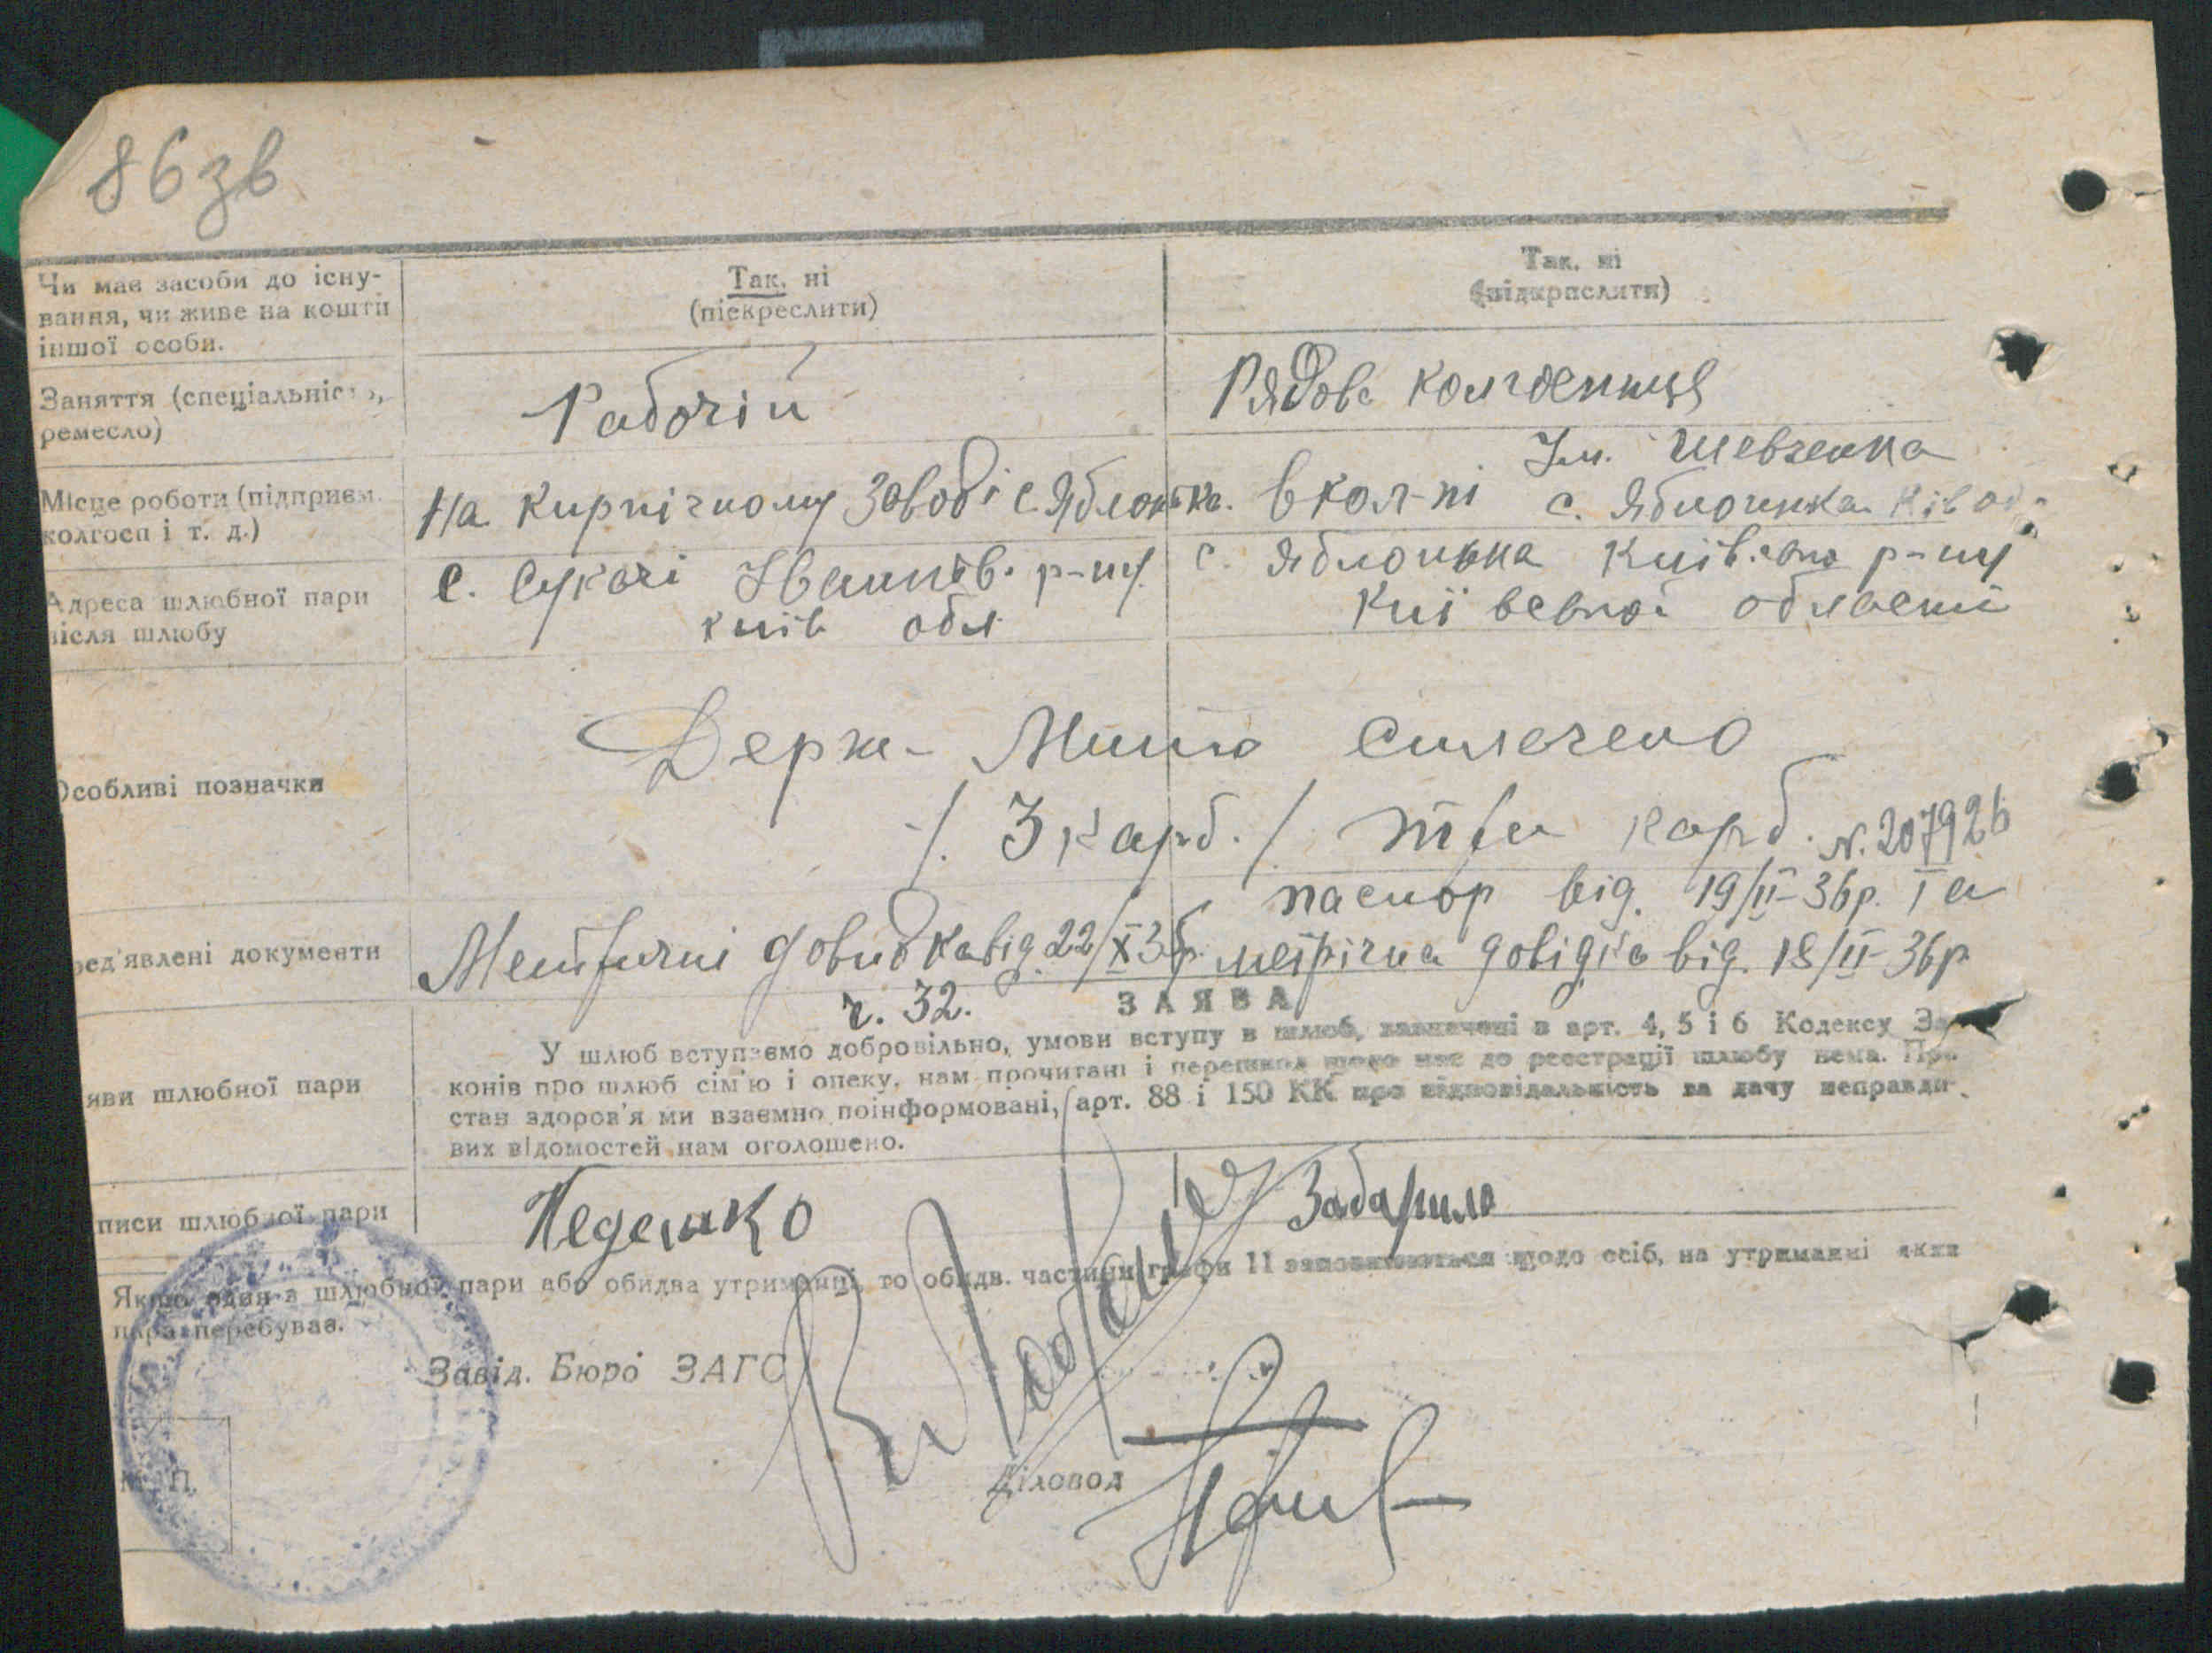 86зв
Чи має засоби до існу-
вання, чи живе на кошти
іншої особи.
Так, ні
(піскреслити)
Так, ні
(підкреслити)
Заняття (спеціальність,
ремесло)
Рабочій
Рядова
Місце роботи (підприєм.
колгосп і т. д.)
На кирпічному заводі с. Яблонька.
Ім. Шевченка
в кол-пі с. Яблонька Київ об
Адреса шлюбної пари
після шлюбу
с. Сукачі Іванків. р-ну
київ обл
с. Яблонька р-ну
області
Особливі позначки
Держ- Мито сплачено
/. 3 карб. / три карб. N. 207926
ред'явлені документи
Метричні довидка від. 22/X 35р.
ч. 32.
паспор від. 19/II-36р. І а
метрічна довідка від. 18/II-36р
ЗАЯВА
яви шлюбної пари
У шлюб вступаємо добровільно, умови вступу в шлюб, зазначені в арт. 4, 5 і 6 Кодексу За-
конів про шлюб сім'ю і опеку, нам прочитані і перешкод щодо нас до реєстрації шлюбу нема. Про
стан здоров'я ми взаємно поінформовані, арт. 88 і 150 КК про відповідальність за дачу неправди-
вих відомостей нам оголошено.
писи шлюбної пари
Педешко
Забарило
Якщо один з шлюбної пари або обидва утриманці, то обидв. частини графи 11 заповнюються щодо осіб, на утриманні яких
пара перебуває.
Завід. Бюро ЗАГС
Діловод
М. П.